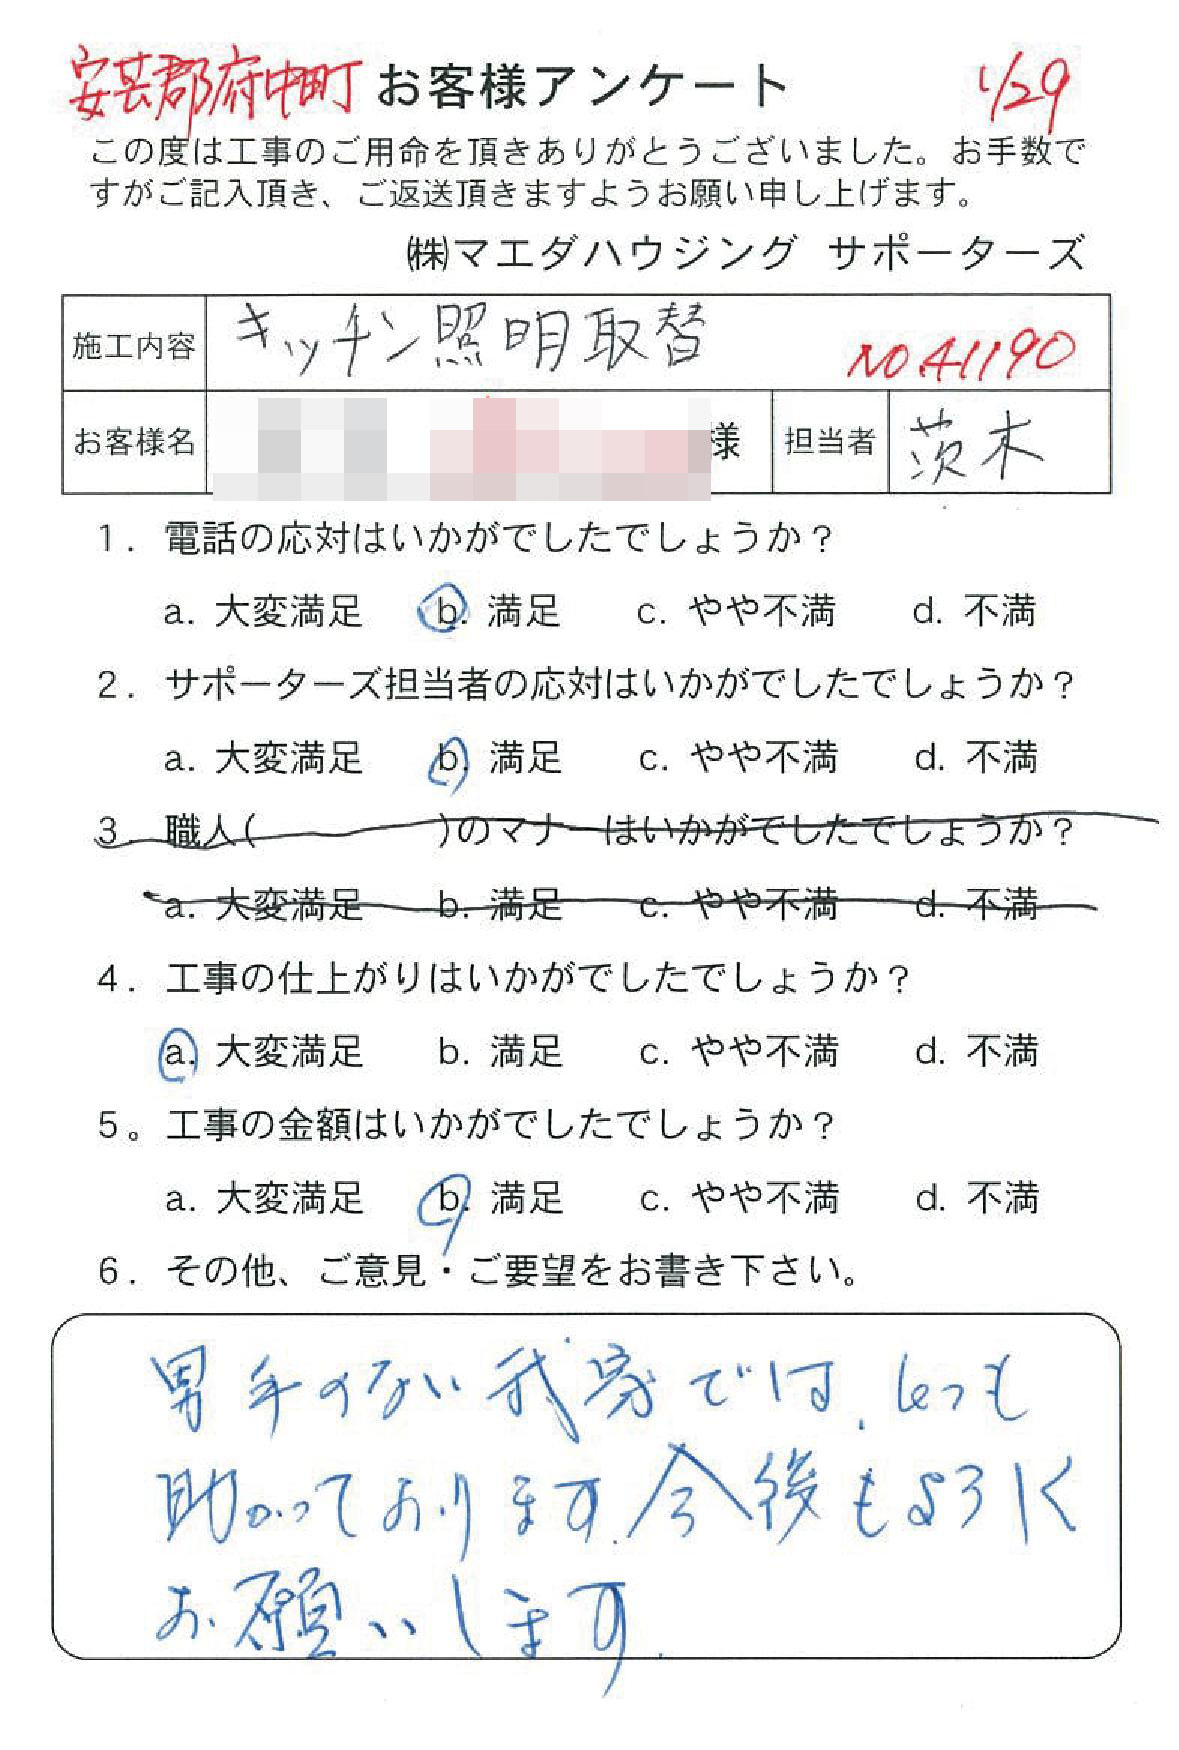 安芸郡府中町 お客様アンケート 1/29
この度は工事のご用命を頂きありがとうございました。お手数で
すがご記入頂き、ご返送頂きますようお願い申し上げます。
㈱マエダハウジング サポーターズ
施工内容 キッチン照明取替 NO.41190
お客様名 様 担当者 茨木
1. 電話の応対はいかがでしたでしょうか？
a. 大変満足 b. 満足 c. やや不満 d. 不満
2. サポーターズ担当者の応対はいかがでしたでしょうか？
a. 大変満足 b. 満足 c. やや不満 d. 不満
3. 職人( )のマナーはいかがでしたでしょうか？
a. 大変満足 b. 満足 c. やや不満 d. 不満
4. 工事の仕上がりはいかがでしたでしょうか？
a. 大変満足 b. 満足 c. やや不満 d. 不満
5。工事の金額はいかがでしたでしょうか？
a. 大変満足 b. 満足 c. やや不満 d. 不満
6. その他、ご意見・ご要望をお書き下さい。
男手のない我家では、とっても
助かっております。今後もよろしく
お願いします。